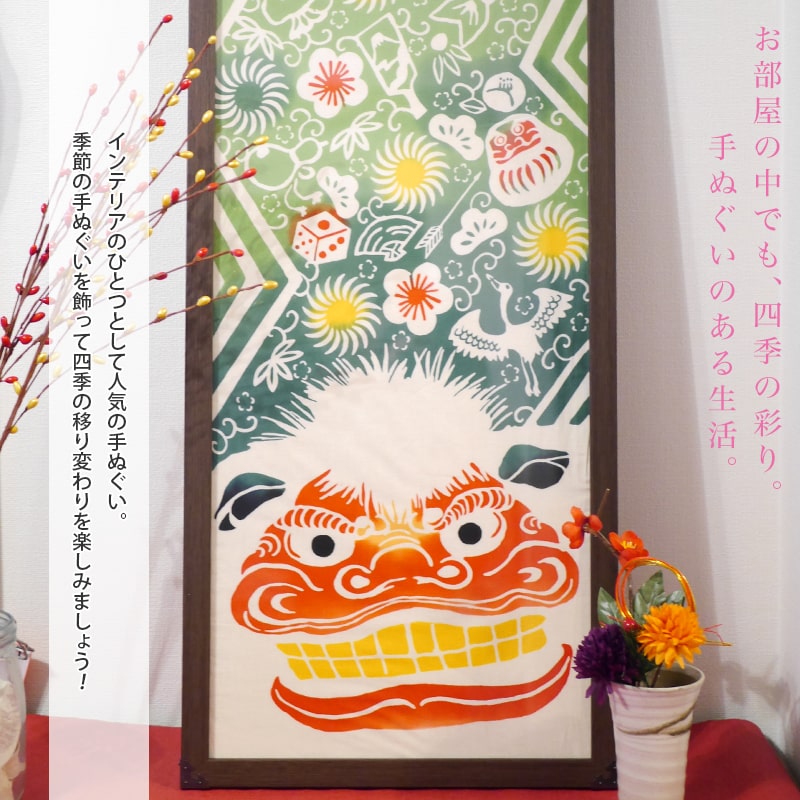 お部屋の中でも、四季の彩り。
手ぬぐいのある生活。
インテリアのひとつとして人気の手ぬぐい。
季節の手ぬぐいを飾って四季の移り変わりを楽しみましょう！